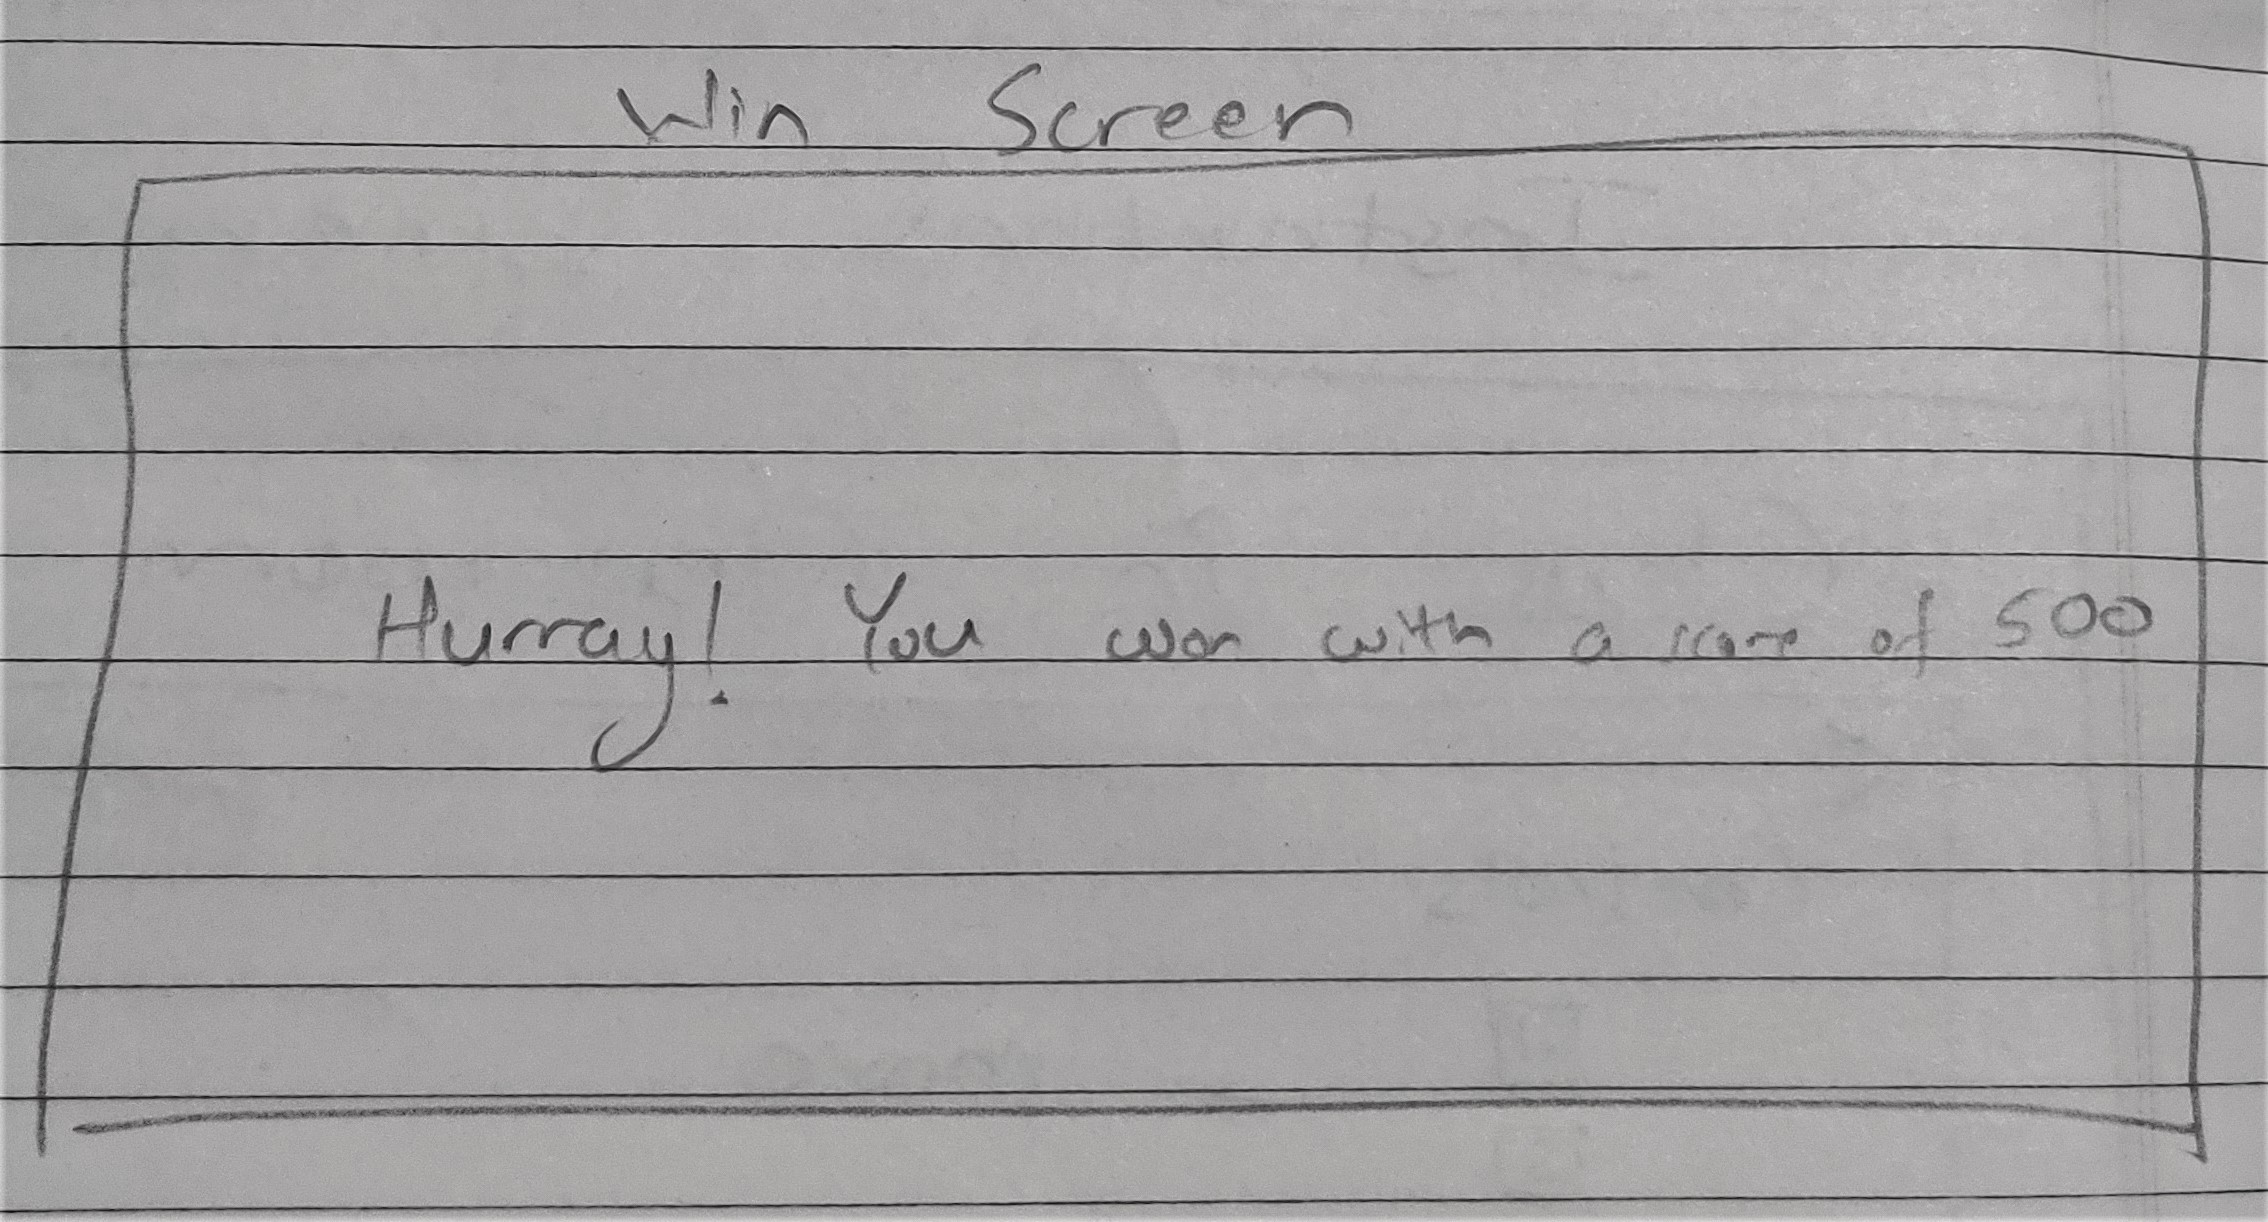 Win Screen
Hurray! You won with a score of 500